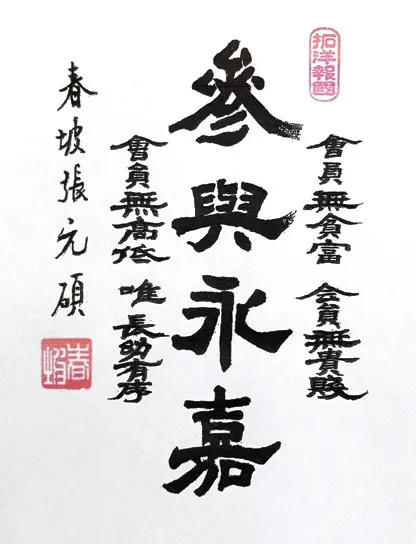 拓洋報國
會員無貧富 会員無貴賤
參與永嘉
會員無高低 唯長幼有序
春坡張元碩